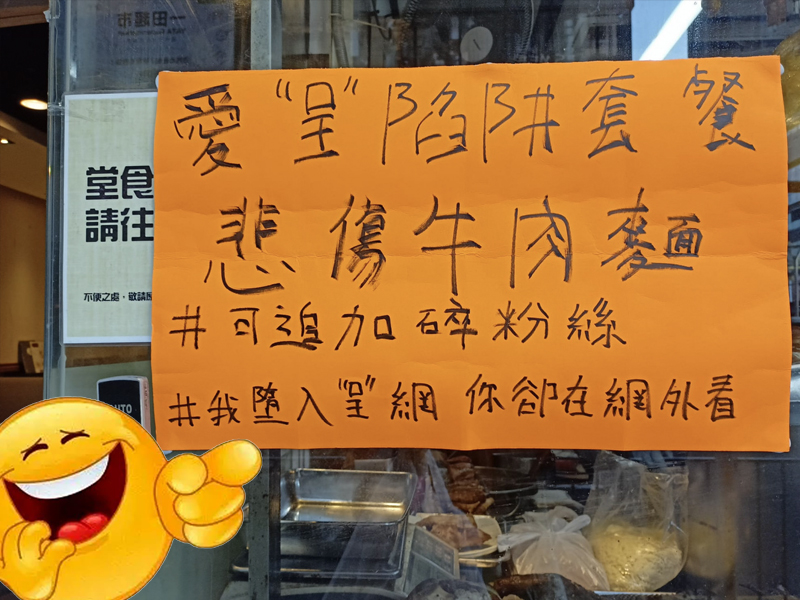 一田超市
愛"呈"陷阱套餐
悲傷牛肉麵
#可追加碎粉絲
#我墮入"呈"網 你卻在網外看
堂食
請往
不便之處，敬請